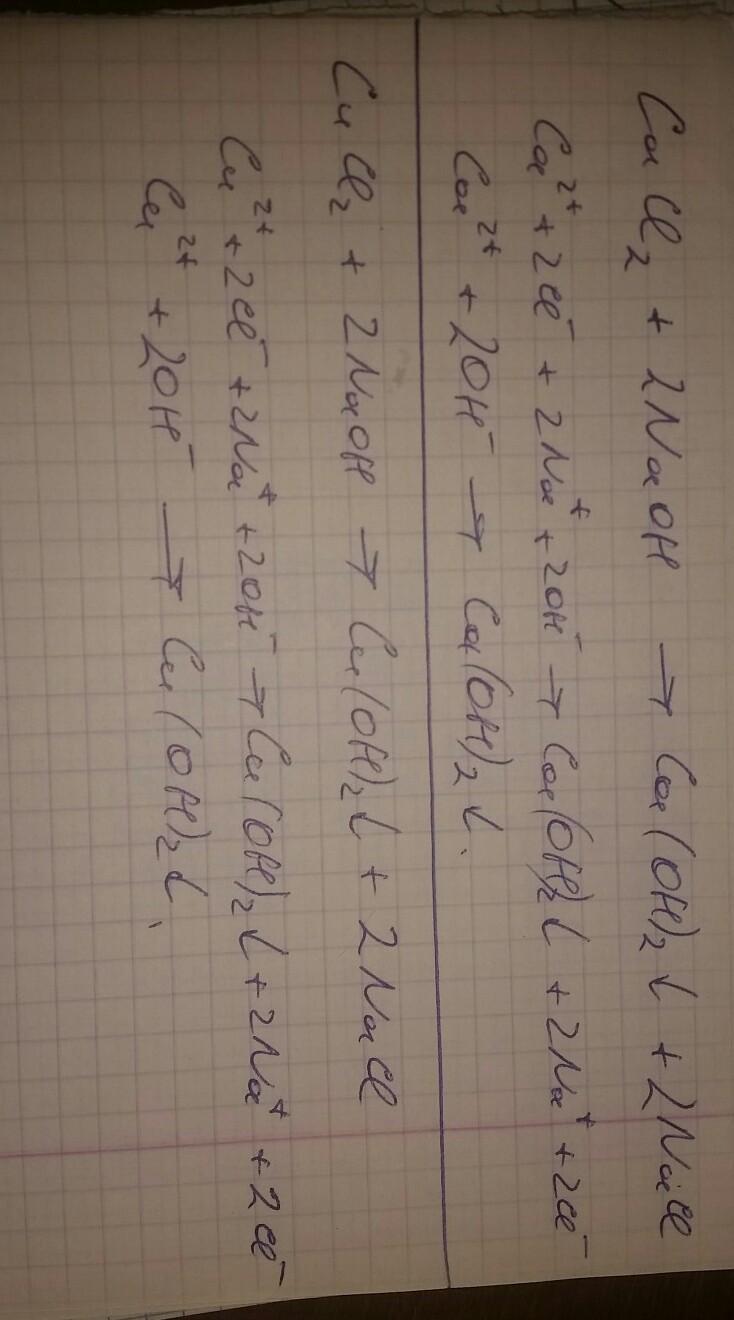 CaCl₂ + 2NaOH → Ca(OH)₂↓ + 2NaCl
Ca²⁺ + 2Cl⁻ + 2Na⁺ + 2OH⁻ → Ca(OH)₂↓ + 2Na⁺ + 2Cl⁻
Ca²⁺ + 2OH⁻ → Ca(OH)₂↓.
CuCl₂ + 2NaOH → Cu(OH)₂↓ + 2NaCl
Cu²⁺ + 2Cl⁻ + 2Na⁺ + 2OH⁻ → Cu(OH)₂↓ + 2Na⁺ + 2Cl⁻
Cu²⁺ + 2OH⁻ → Cu(OH)₂↓.